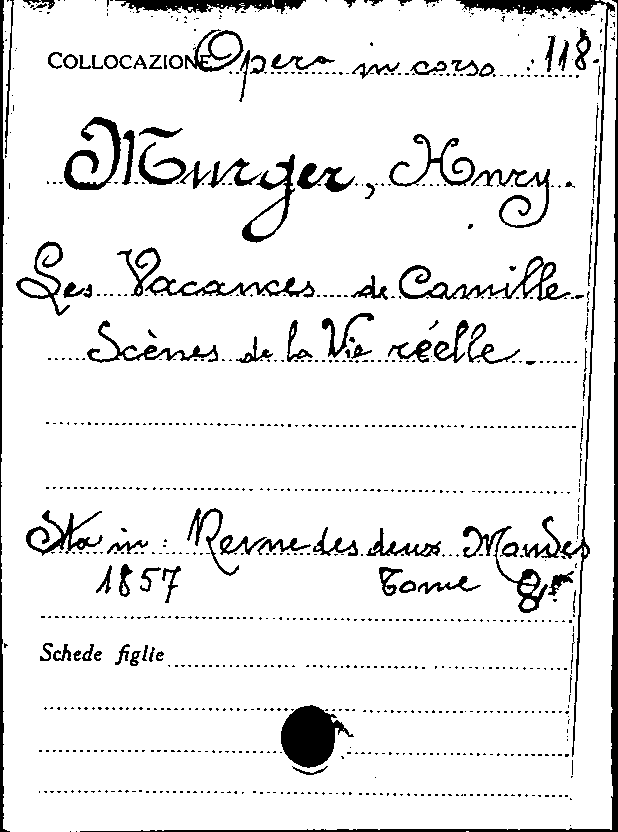 COLLOCAZIONE Opera in corso 118.
Murger, Henry.
Les Vacances de Camille.
Scènes de la Vie réelle.
Sta in: Revue des deux Mondes
1857 Tome
Schede figlie